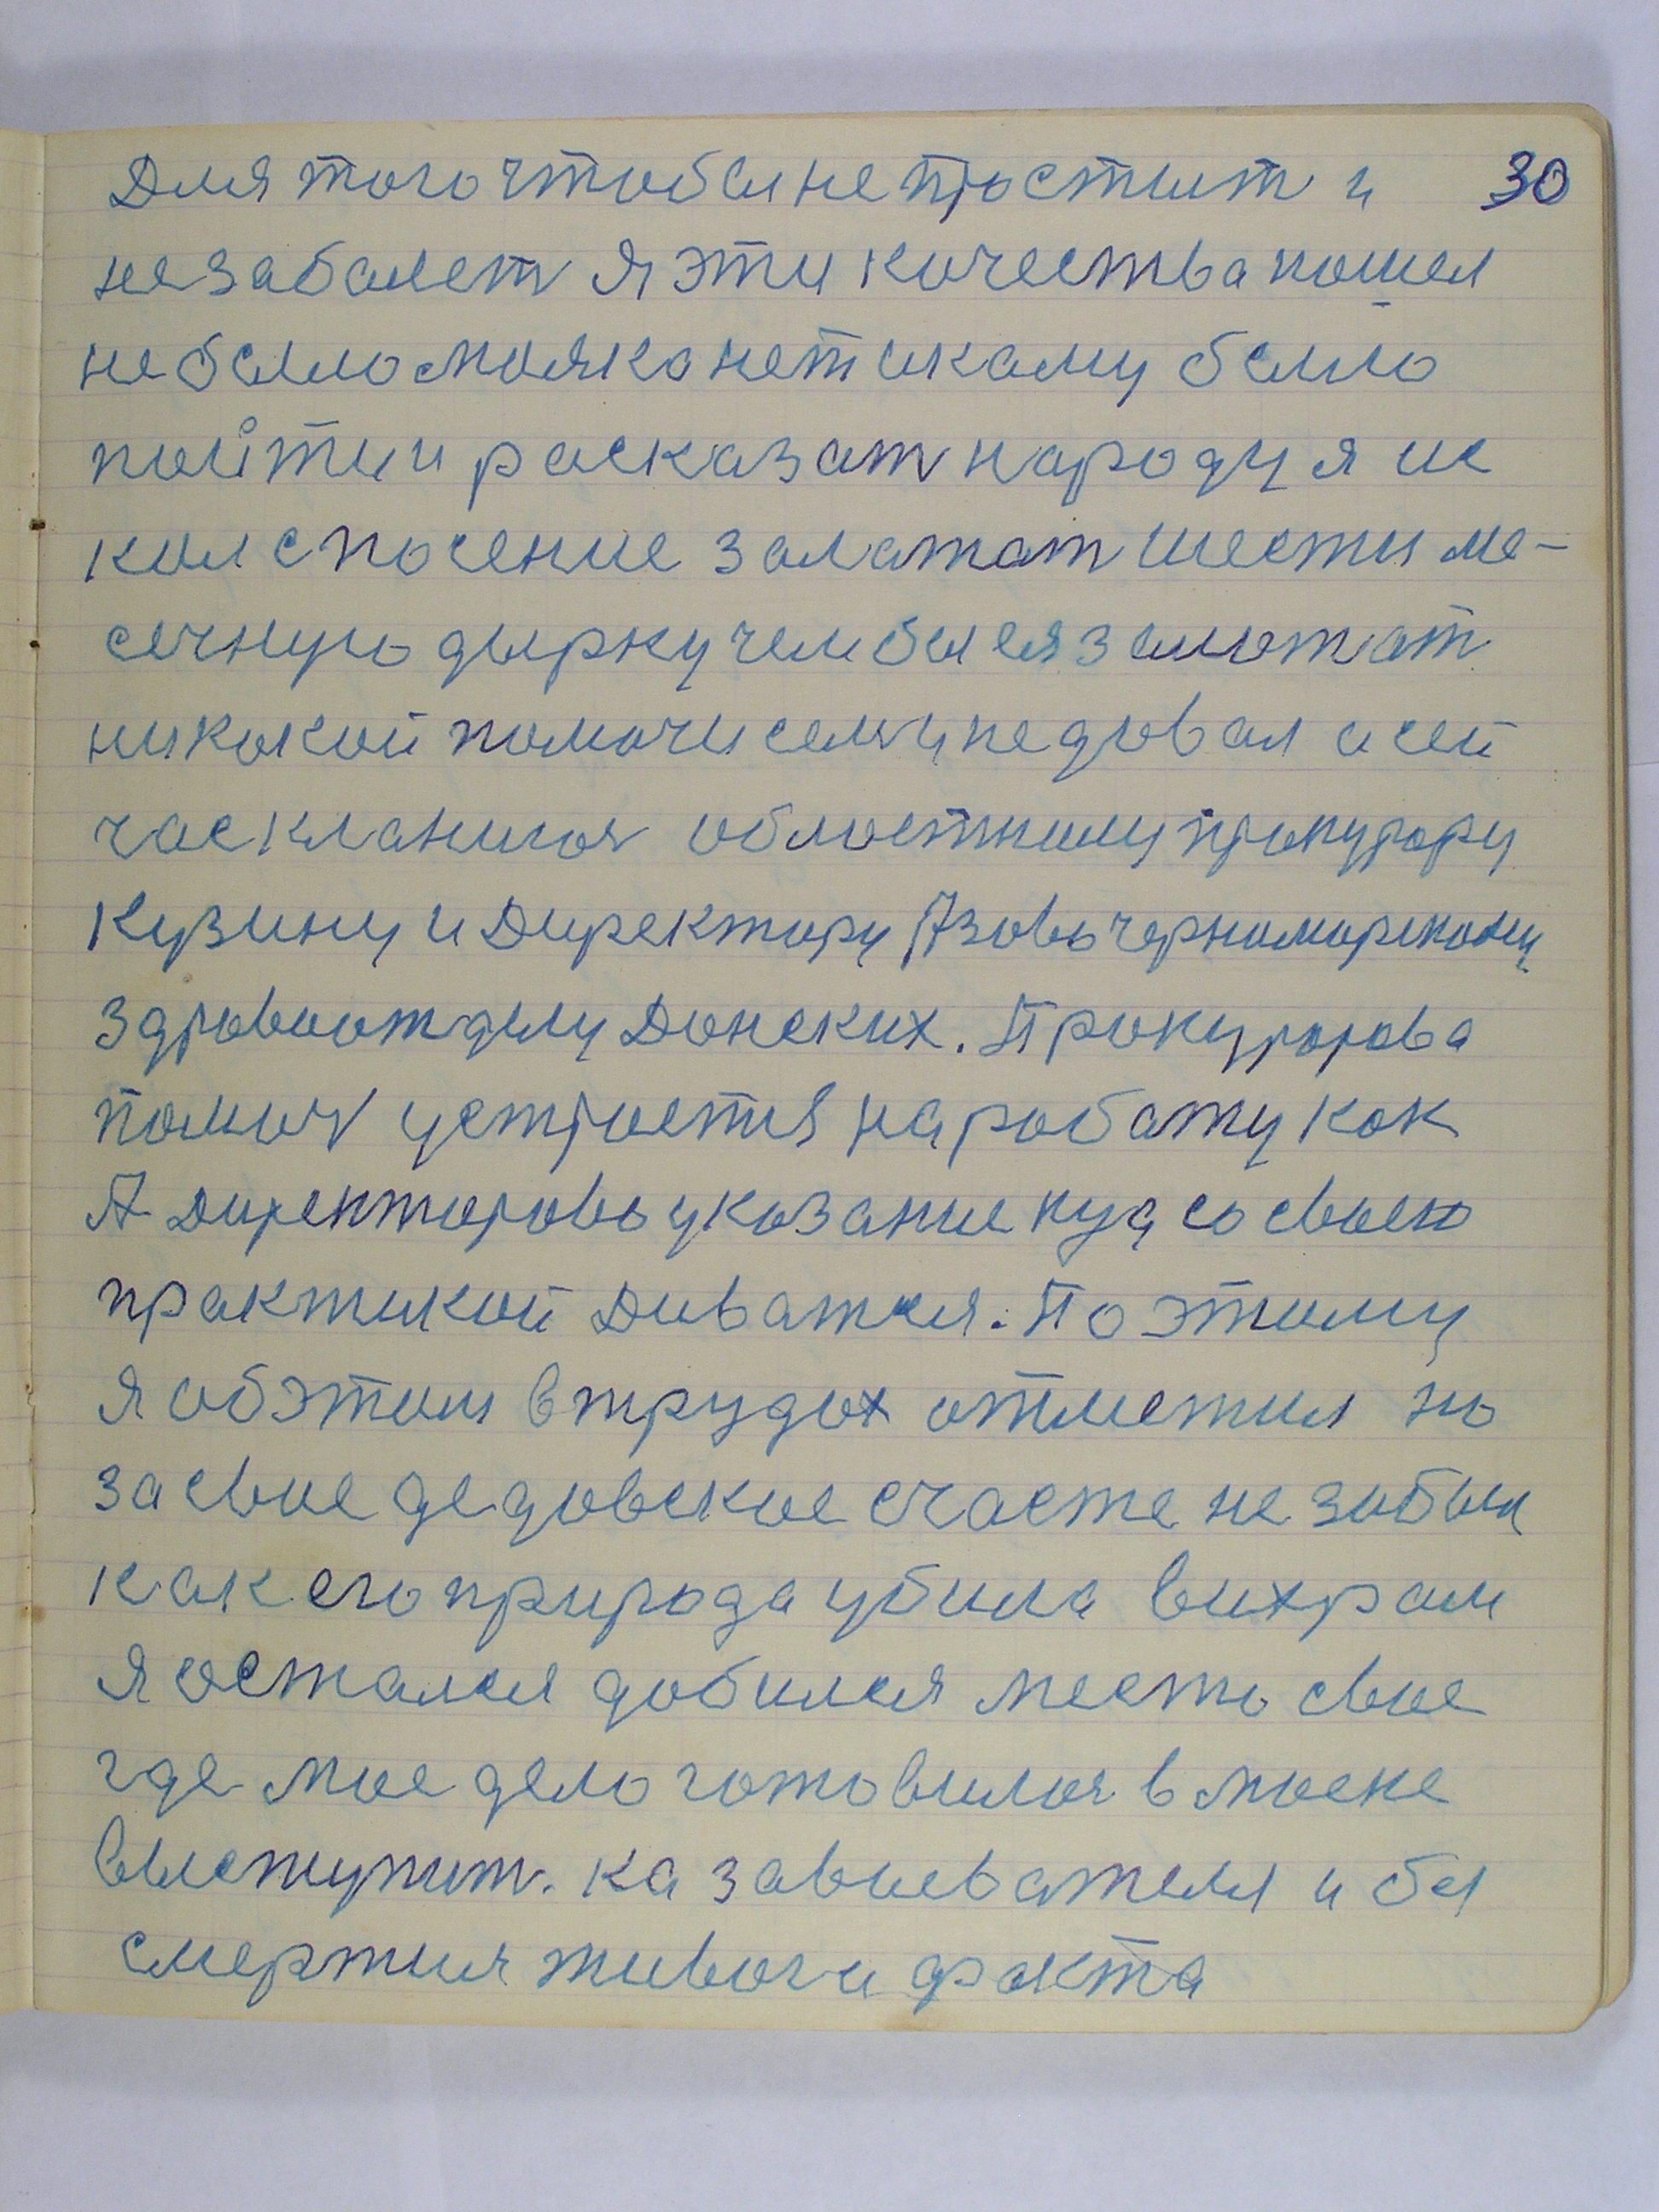 Для того чтобы не простит и 30
не заболет Я эти качества нашел
не было маяка нет и каму было
пойти и расказат народу я ис
кал спосение залатат шести ме-
сечную дырку чем бы ея залотат
никокой помочи семи не довал и сей
час кланиюс облостному прокурору
Кузину и Директору Азовочерноморскому
здровоотделу Донских. Прокуророва
помоч устроется на работу как
А Директорово указание куд со своею
практикой Диватся. По этому
Я об этом в трудах отметил но
за свое дедовское счасте не забыл
как его природа убила вихрам
Я остался добился место свое
где мое дело готовилос в моске
выступит. ка завоевателя и бы
смертия живого и факта